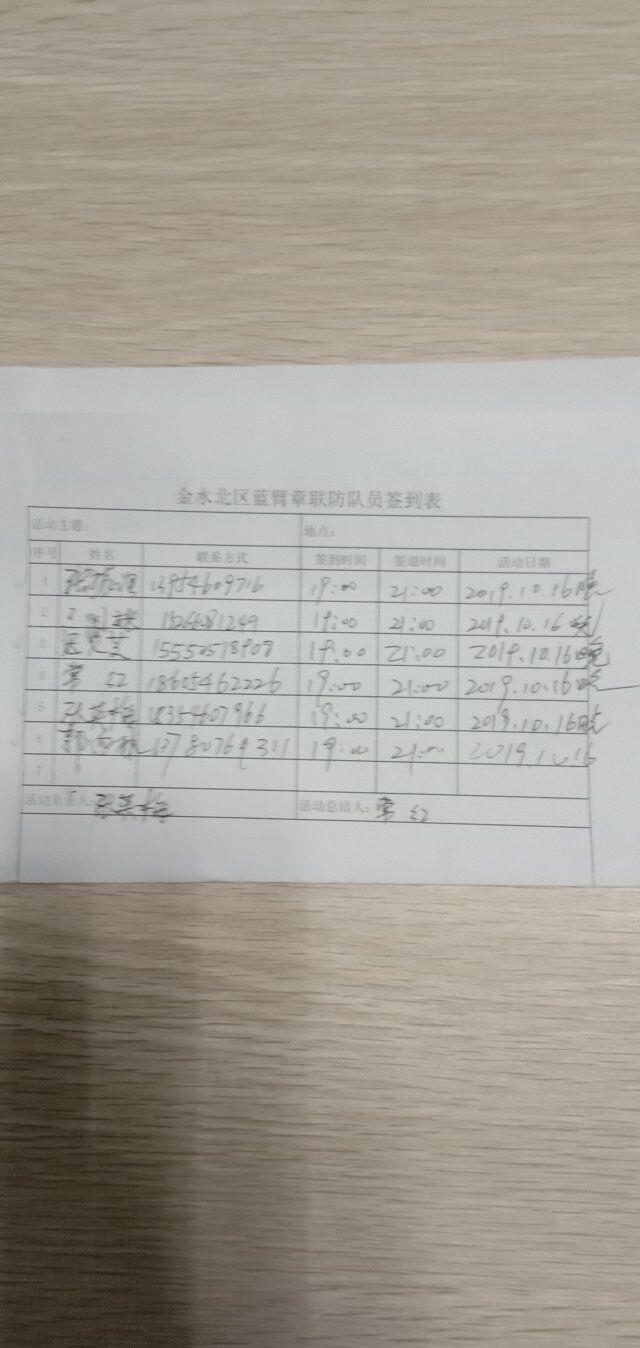 金水北区蓝臂章联防队员签到表
活动主题: 地点:
序号 姓名 联系方式 签到时间 签退时间 活动日期
1 13954609716 19:00 21:00 2019.10.16晚
2 1526681249 19:00 21:00 2019.10.16晚
3 15550518908 19:00 21:00 2019.10.16晚
4 常红 18605462226 19:00 21:00 2019.10.16晚
5 18354607966 19:00 21:00 2019.10.16晚
6 13780764311 19:00 21:00 2019.10.16
7
活动负责人: 活动总结人: 常红